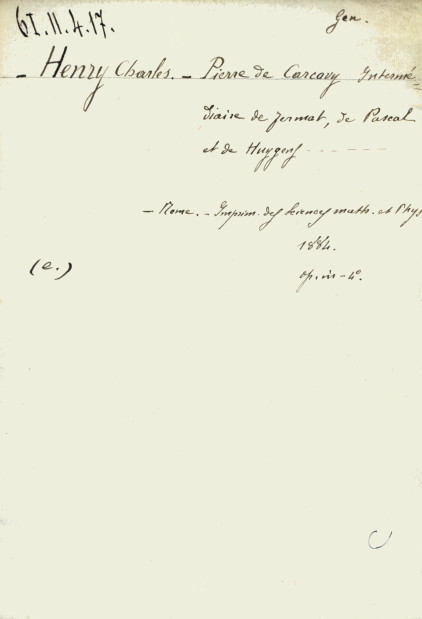 61.II.4.17.
Gen.
- Henry Charles. - Pierre de Carcavy Intermé-
diaire de Fermat, de Pascal
et de Huygens - - - - - -
- Rome. - Imprim. des Sciences math. et Phys
1884.
op. in-4°.
(e.)